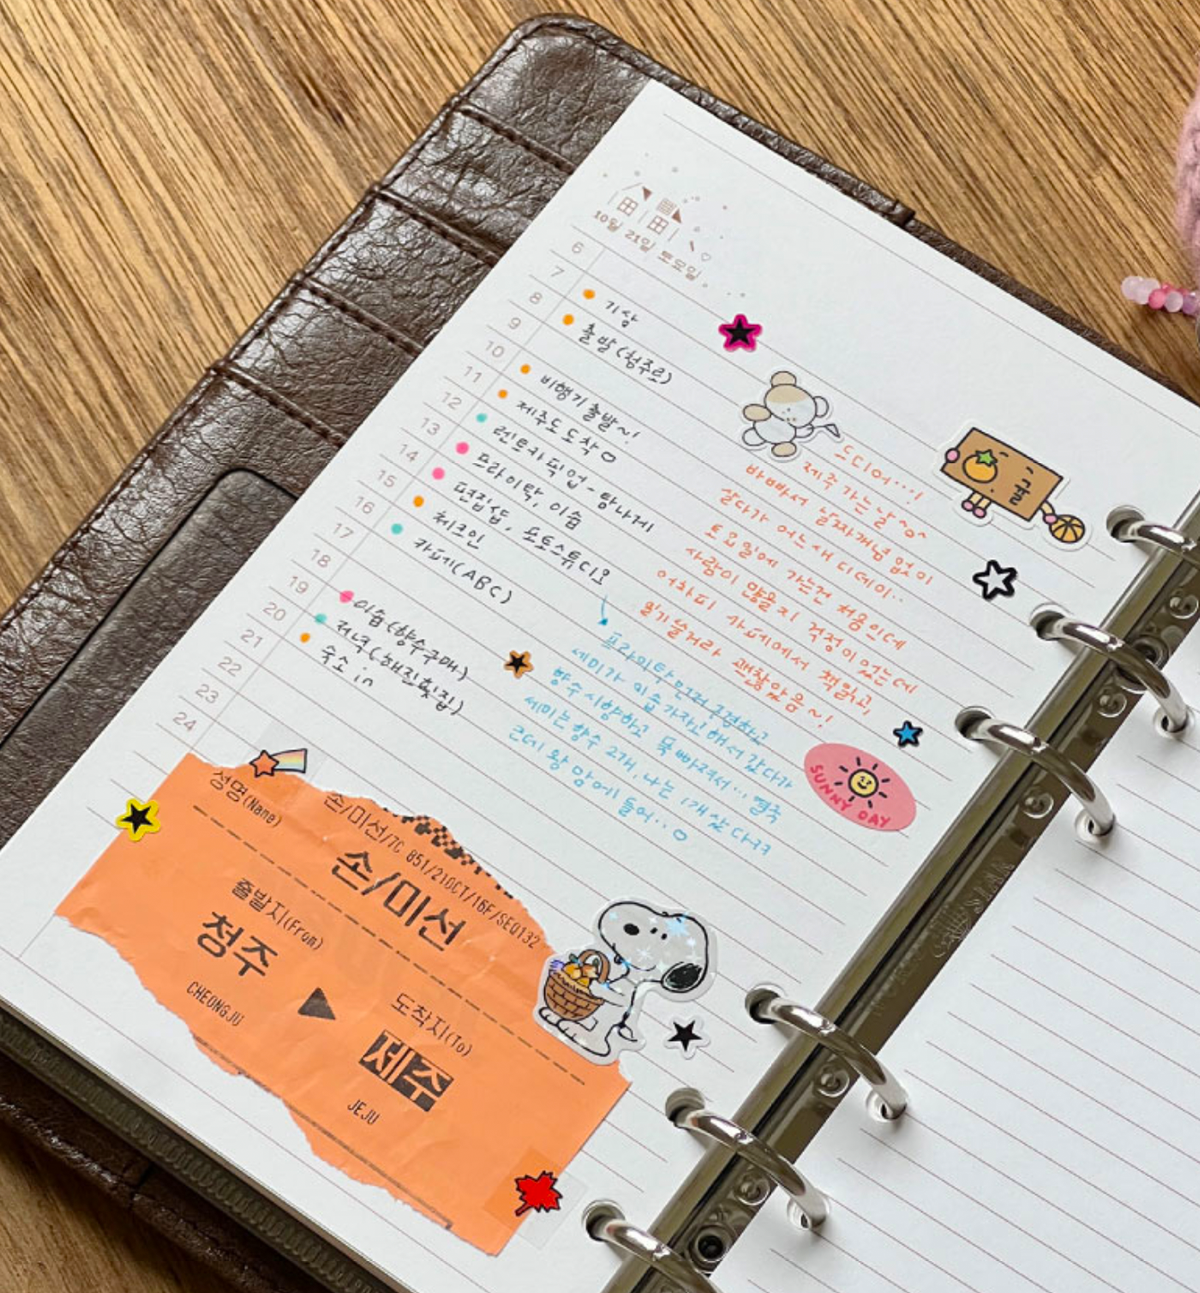 10월 21일 토요일
6
7
8 기상
9 출발(청주로)
10
11 비행기 출발~!
12 제주도 도착
13 렌트카 픽업 - 탐나게
14 프라이탁, 이솝
15 편집샵, 포토스튜디오
16 체크인
17 카페(ABC)
18
19 이솝(향수구매)
20 저녁(해진횟집)
21 숙소 in
22
23
24
드디어...!
제주 가는 날~
바빠서 날짜개념 없이
살다가 어느새 디데이..
토요일에 가는건 처음이데
사람이 많을지 걱정이 있는데
어차피 카페에서 책읽고,
일기쓸거라 괜찮았음~!
프라이탁 먼저 구경하고
세미가 이솝 가자고 해서 갔다가
향수 시향하고 푹 빠져서... 결국
세미는 향수 2개, 나는 1개 샀다ㅋㅋ
근데 왕 맘에 들어..
귤
SUNNY DAY
성명(Name)
손/미선/7C 851/21OCT/16F/SEQ132
손/미선
출발지(From)
청주
CHEONGJU
도착지(To)
제주
JEJU